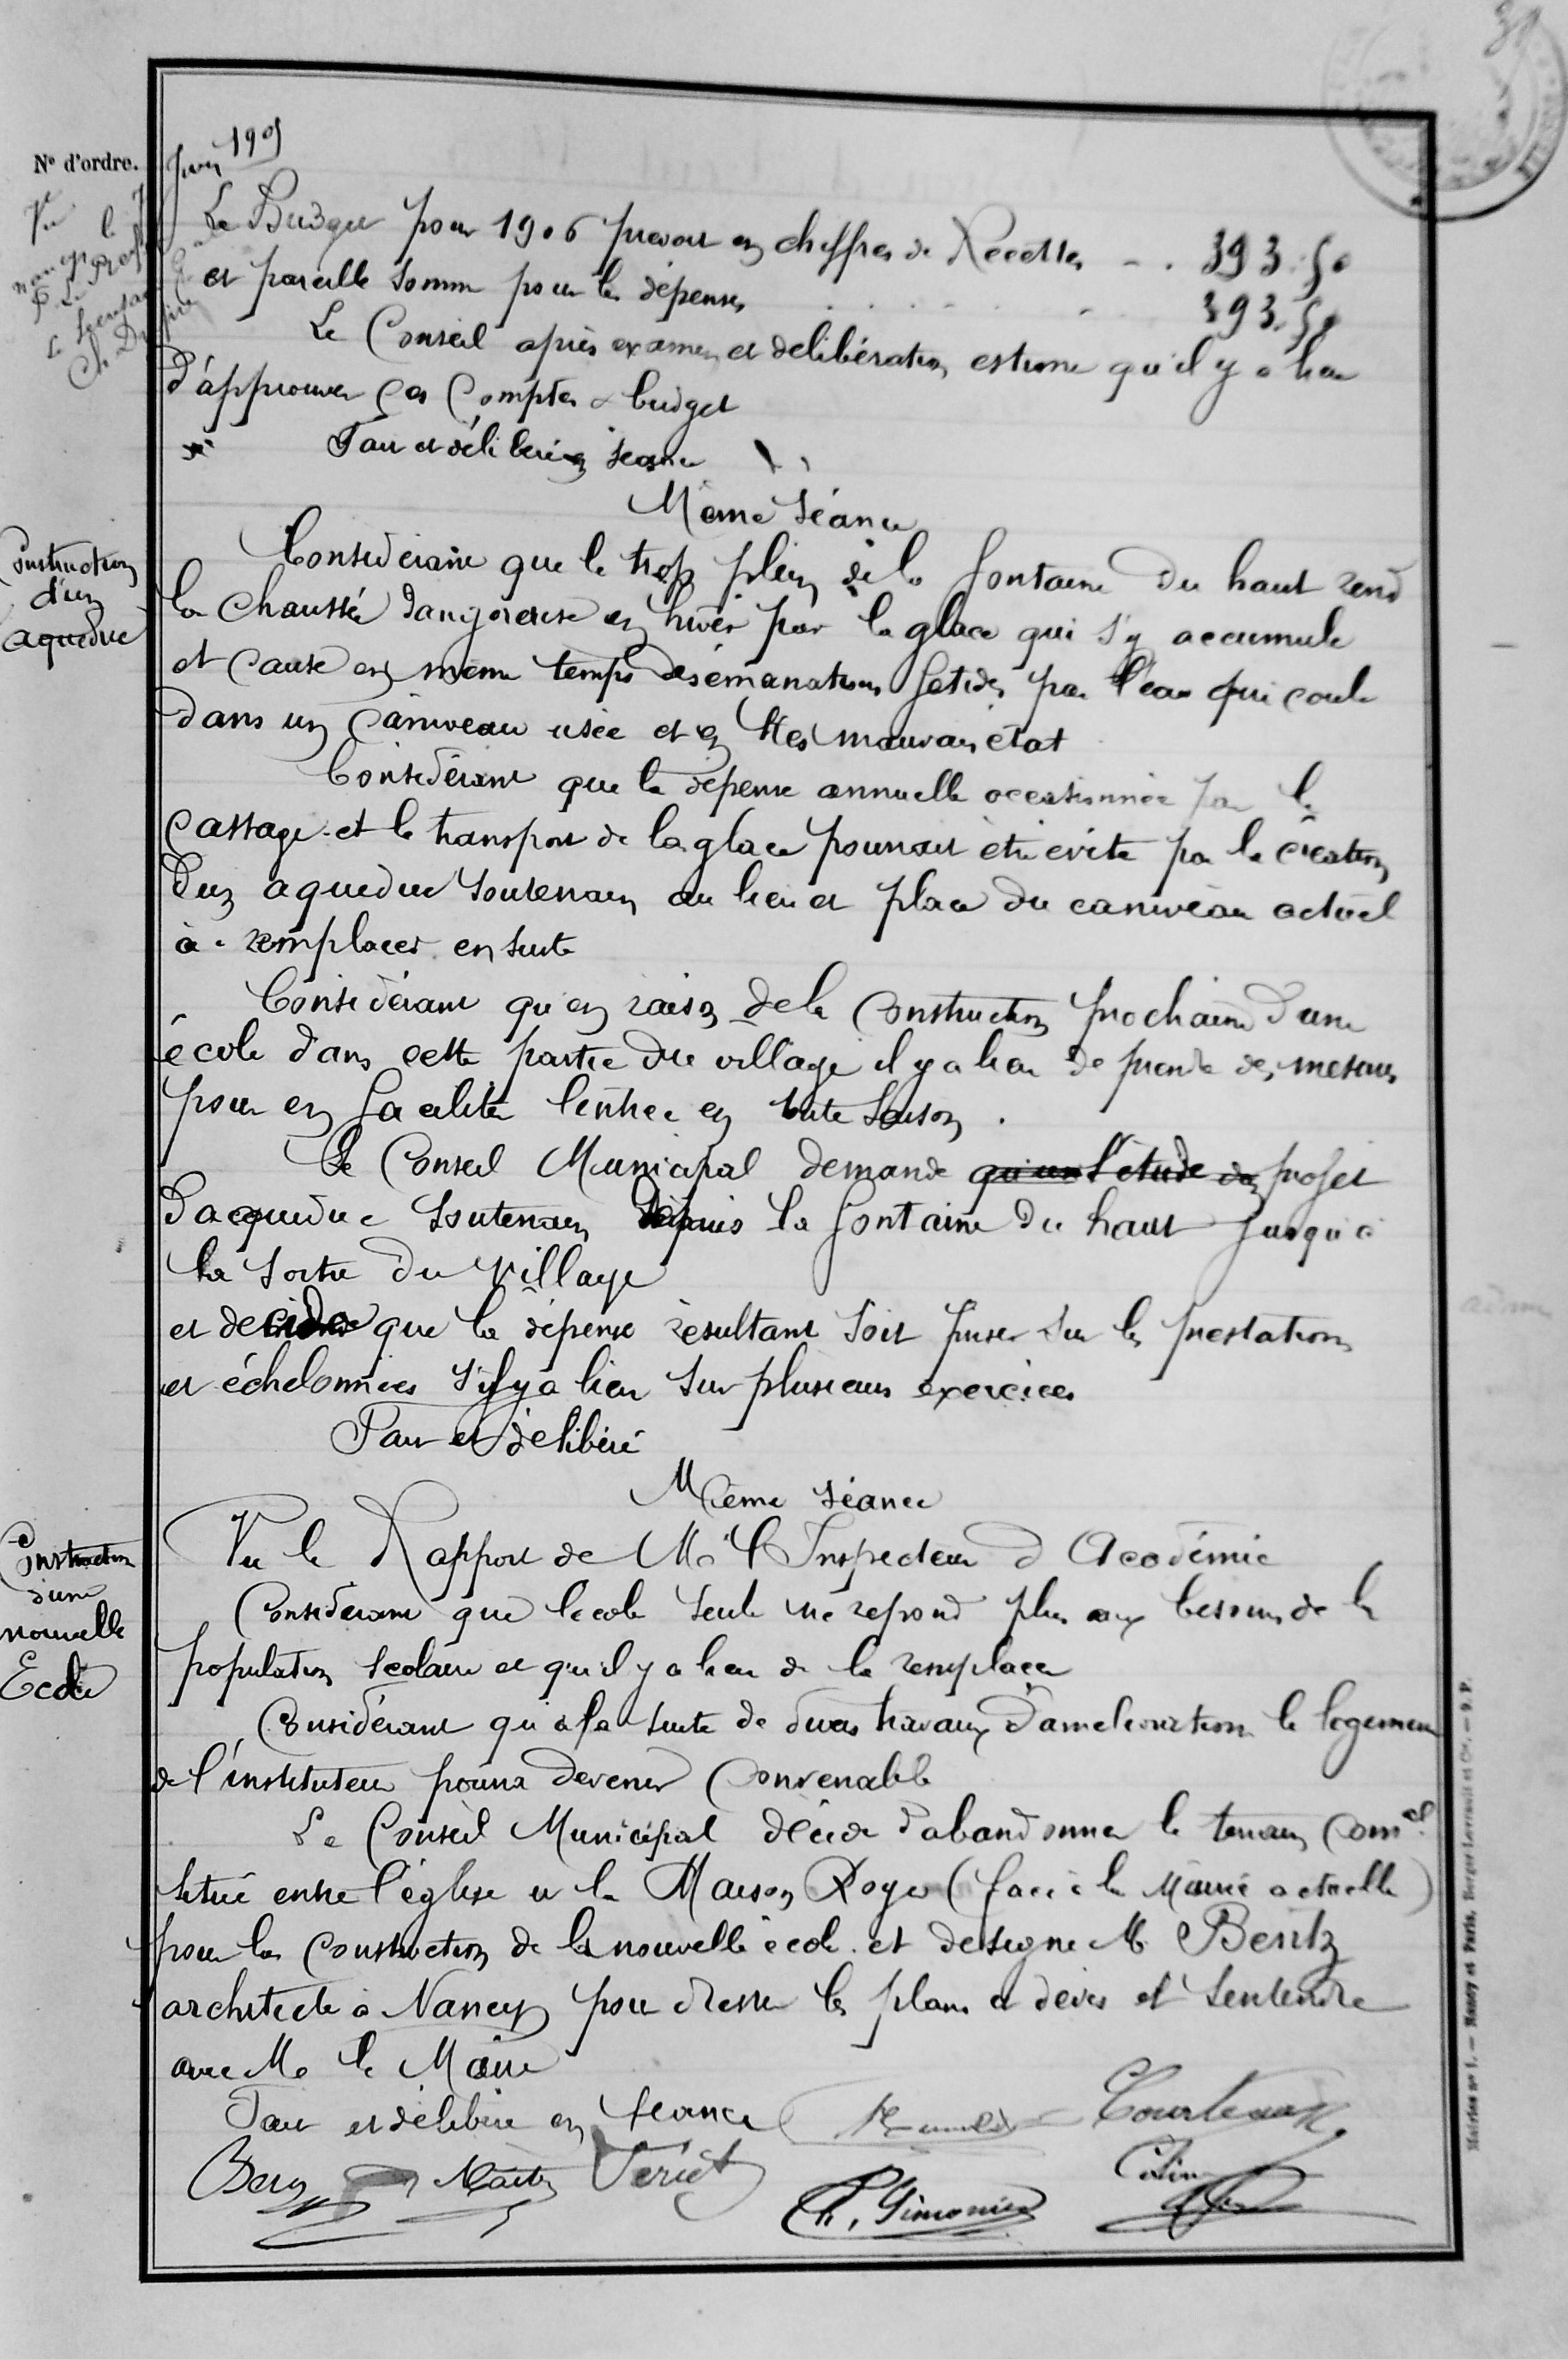 31
N° d'ordre.
Juin 1905
Vu
Nancy le
P. Le Préfet
Le Secrétaire
Le Budget pour 1906 prevoit en chiffres de Recettes - . 393.50
et pareille somme pour les dépenses . . . . . 393.50
Le Conseil après examen et delibération estime qu'il y a lieu
d'approuver ces Comptes & budget
Fait et délibéré en séance
Même séance
Construction
d'un
aqueduc
Considérant que le trop plein de la fontaine du haut rend
la chaussée dangereuse en hiver par la glace qui s'y accumule
et cause en même temps des émanations fetides par l'eau qui coule
dans un caniveau usée et en tres mauvais état
Considérant que la dépense annuelle occasionnée par le
cassage et le transport de la glace pourrait être évité par la création
d'un aqueduc souterrain au lieu et place du caniveau actuel
à remplacer ensuite
Considérant qu'en raison de la construction prochaine d'une
école dans cette partie du village il y a lieu de prendre des mesures
pour en faciliter l'entrée en toute saison .
Le Conseil Municipal demande qu'un l'étude du projet
d'acqueduc souterrain depuis la fontaine du haut jusqu'à
la sortie du village
et decide que la dépense résultant soit prise sur les prestations
et échelonnées s'il y a lieu sur plusieurs exercices
Fait et délibéré
Même séance
Construction
d'une
nouvelle
Ecole
Vu le Rapport de Mr l'Inspecteur d'Académie
Considérant que l'école seule ne repond plus aux besoins de la
population scolaire et qu'il y a lieu de la remplacer
Considérant qu'à la suite de divers travaux d'amelioration le logement
de l'instituteur pourra devenir convenable
Le Conseil Municipal décide d'abandonner le terrain comal
situé entre l'église et la Maison Royer (face à la Mairie actuelle)
pour la construction de la nouvelle école et designe Mr Bentz
architecte à Nancy pour dresser les plans et devis et s'entendre
avec Mr le Maire
Fait et délibéré en séance
Courteaux
Bery Martin Veriet
Ch. Simonin
Colin
Mairies n° 1. — Nancy et Paris, Berger-Levrault et Cie. — 9. P.